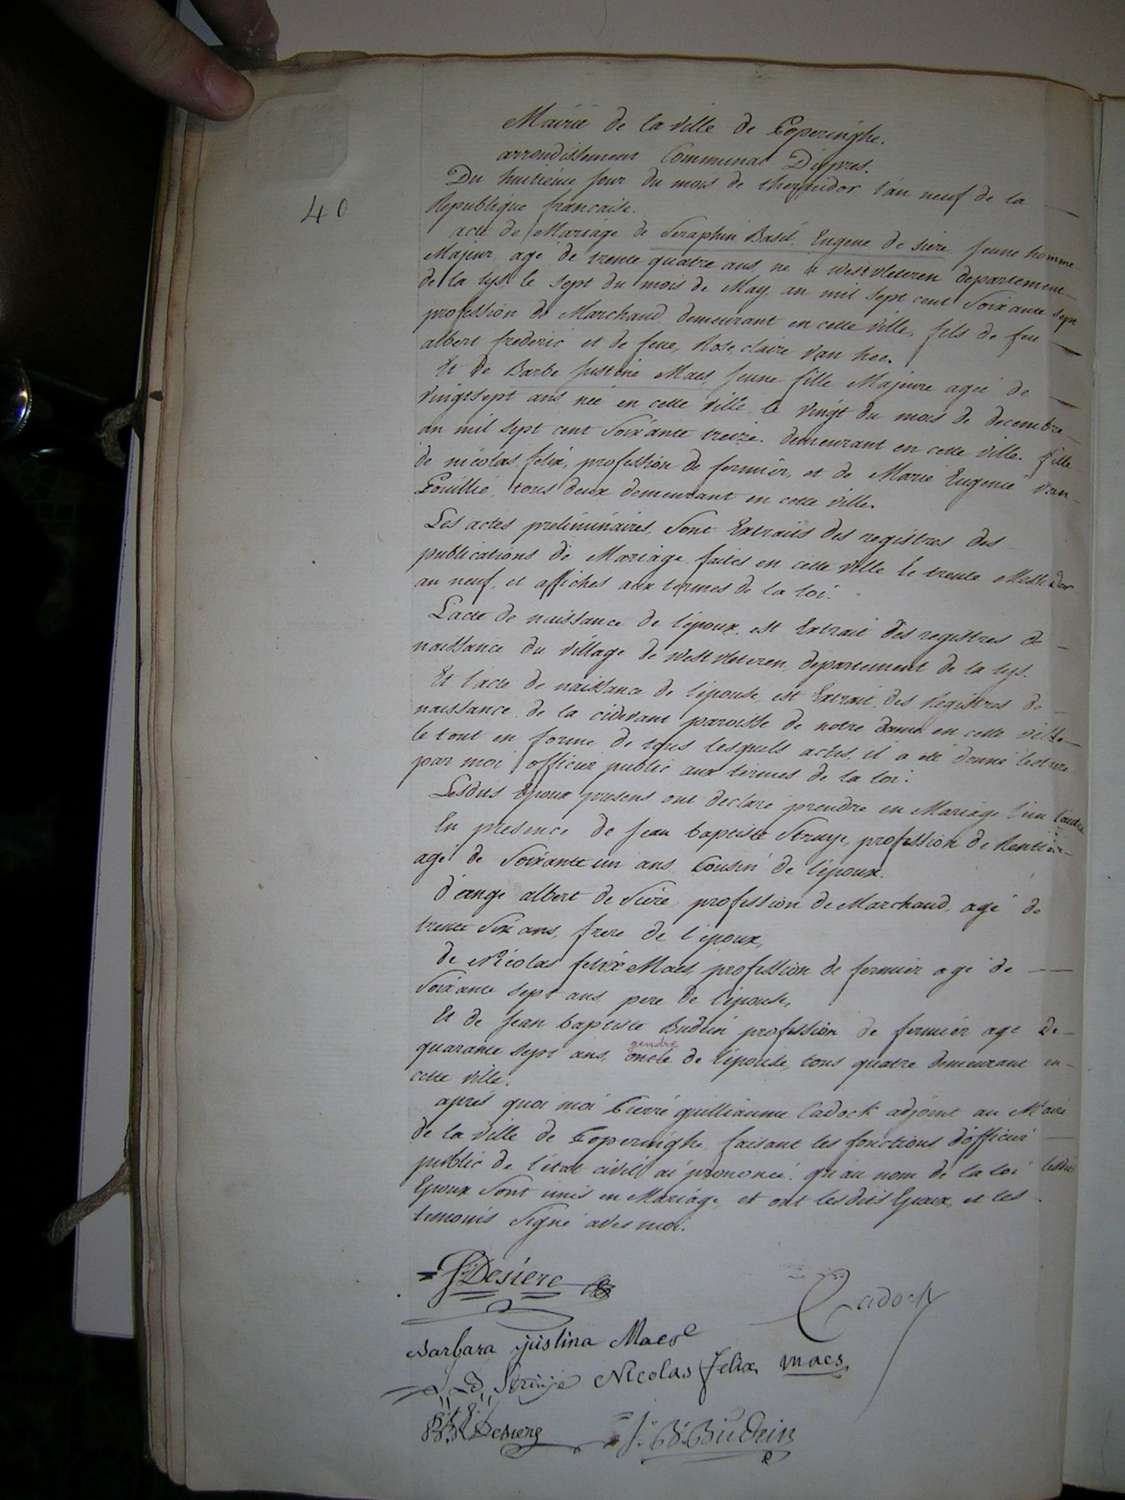 Mairie de la ville de Poperinghe.
arrondissement Communal D'ipres.
40
Du huitieme jour du mois de thermidor l'an neuf de la
Republique francaise.
acte de Mariage de Seraphin Basil Eugene de siere jeune homme
Majeur, agé de trente quatre ans, né a westvleteren departement
de la lys le sept du mois de May an mil sept cent Soixante sept
profession de Marchand demeurant en cette ville, fils de feu
albert frederic et de feue, Rose claire Van hee.
Et de Barbe Justine Maes jeune fille Majeure agée de
vingtsept ans née en cette ville le vingt du mois de decembre
an mil sept cent Soixante treize. demeurant en cette ville. fille
de nicolas felix, profession de fermier, et de Marie Eugenie Van
Pouillie, tous deux demeurant en cette ville.
Les actes preliminaires, Sont Extraits des registres des
publications de Mariage faites en cette ville le trente Messidor
an neuf, et affichés aux termes de la loi.
L'acte de naissance de l'epoux, est Extrait des registres de
naissance du village de westvleteren, departement de la lys.
Et l'acte de naissance de l'epouse, est Extrait des Registres de
naissance de la cidevant paroisse de notre dame en cette ville
le tout en forme de tous lesquels actes il a été donné lecture
par moi officier public aux termes de la loi.
Lesdits Epoux presens ont declaré prendre en Mariage l'un l'autre
En presence de Jean baptiste Struye, profession de Rentier
agé de Soixante un ans Cousin de l'epoux.
d'ange albert de Siere profession de Marchand, agé de
trente Six ans, frere de l'epoux,
de Nicolas felix Maes profession de fermier agé de
Soixante sept ans pere de l'epouse,
Et de Jean baptiste Budein profession de fermier agé de
gendre
quarante sept ans, oncle de l'epouse, tous quatre demeurant en
cette ville.
après quoi moi Pierre guilliaume Cadock adjoint au Maire
de la ville de Poperinghe faisant les fonctions d'officier
public de l'etat civil ai prononcé qu'au nom de la loi lesdits
Epoux Sont unis en Mariage, et ont lesdits Epoux, et les
temouis Signé avec moi.
Desiere
Cadock
Barbara justina Maes
Nicolas felix maes
Desiere
J. B. Budein